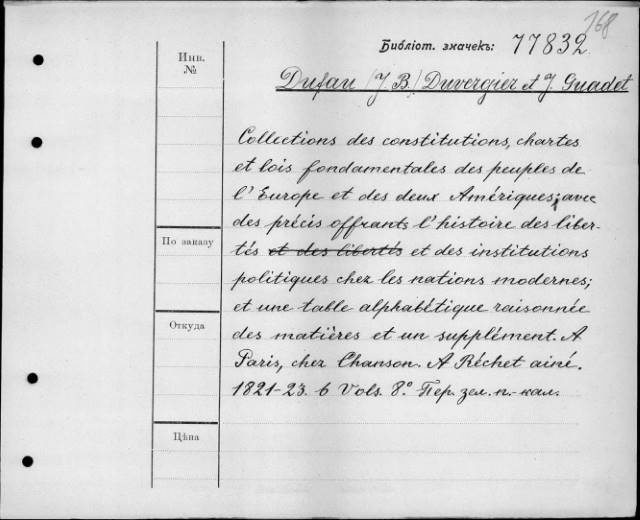 168
Библіот. значекъ: 77832
Инв. №
Dufau (J. B.) Duvergier et J. Guadet
Collections des constitutions, chartes
et lois fondamentales des peuples de
l'Europe et des deux Amériques; avec
des précis offrants l'histoire des liber-
tés et des libertés et des institutions
politiques chez les nations modernes;
et une table alphabétique raisonnée
des matières et un supplément. A
Paris, chez Chanson. A Réchet ainé.
1821-23. 6 Vols. 8° Пер. зел. п.-кал.
По заказу
Откуда
Цѣна